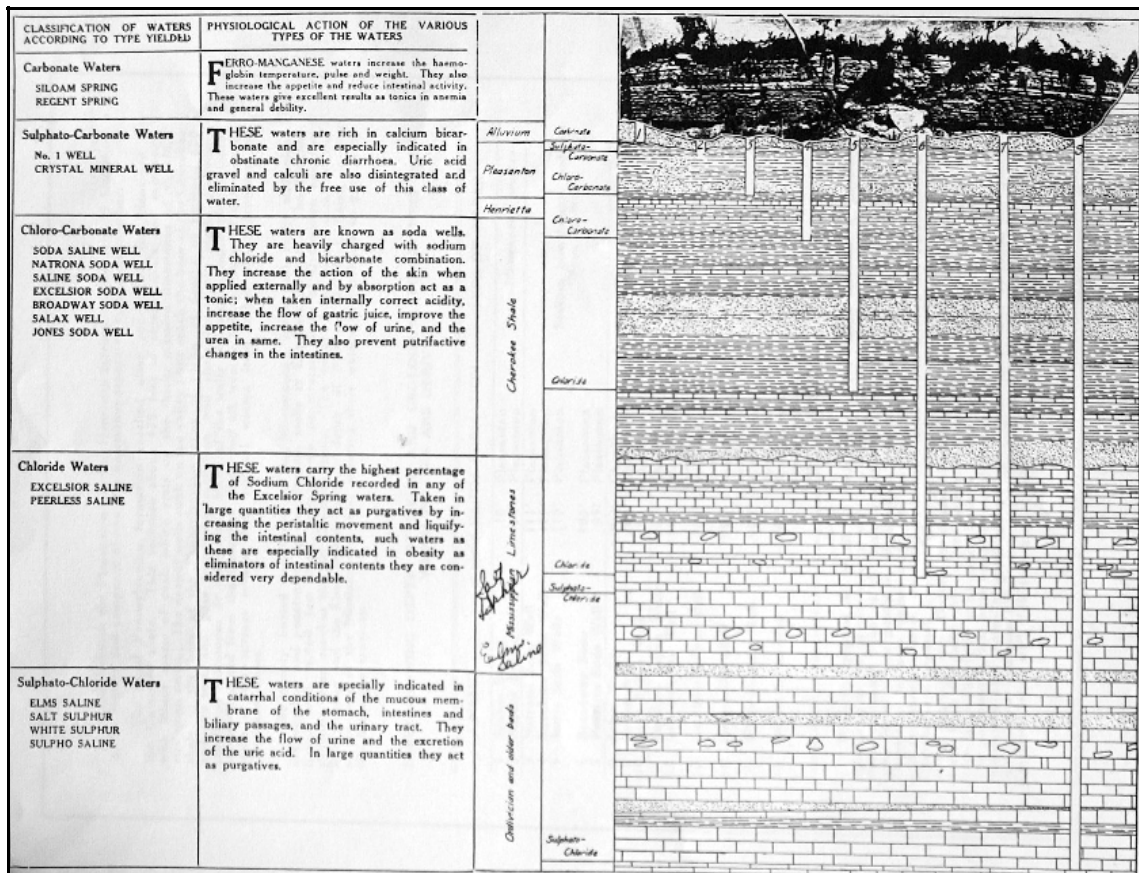 CLASSIFICATION OF WATERS
ACCORDING TO TYPE YIELDED
PHYSIOLOGICAL ACTION OF THE VARIOUS
TYPES OF THE WATERS
Carbonate Waters
SILOAM SPRING
REGENT SPRING
FERRO-MANGANESE waters increase the haemo-
globin temperature, pulse and weight. They also
increase the appetite and reduce intestinal activity.
These waters give excellent results as tonics in anemia
and general debility.
Sulphato-Carbonate Waters
No. 1 WELL
CRYSTAL MINERAL WELL
THESE waters are rich in calcium bicar-
bonate and are especially indicated in
obstinate chronic diarrhoea. Uric acid
gravel and calculi are also disintegrated and
eliminated by the free use of this class of
water.
Chloro-Carbonate Waters
SODA SALINE WELL
NATRONA SODA WELL
SALINE SODA WELL
EXCELSIOR SODA WELL
BROADWAY SODA WELL
SALAX WELL
JONES SODA WELL
THESE waters are known as soda wells.
They are heavily charged with sodium
chloride and bicarbonate combination.
They increase the action of the skin when
applied externally and by absorption act as a
tonic; when taken internally correct acidity,
increase the flow of gastric juice, improve the
appetite, increase the flow of urine, and the
urea in same. They also prevent putrifactive
changes in the intestines.
Chloride Waters
EXCELSIOR SALINE
PEERLESS SALINE
THESE waters carry the highest percentage
of Sodium Chloride recorded in any of
the Excelsior Spring waters. Taken in
large quantities they act as purgatives by in-
creasing the peristaltic movement and liquify-
ing the intestinal contents, such waters as
these are especially indicated in obesity as
eliminators of intestinal contents they are con-
sidered very dependable.
Sulphato-Chloride Waters
ELMS SALINE
SALT SULPHUR
WHITE SULPHUR
SULPHO SALINE
THESE waters are specially indicated in
catarrhal conditions of the mucous mem-
brane of the stomach, intestines and
biliary passages, and the urinary tract. They
increase the flow of urine and the excretion
of the uric acid. In large quantities they act
as purgatives.
Alluvium
Pleasanton
Henrietta
Cherokee Shale
Mississippian Limestones
Salt
Sulphur
Elms
Saline
Ordivician and older beds
Carbonate
Sulphato-
Carbonate
Chloro-
Carbonate
Chloro-
Carbonate
Chloride
Chloride
Sulphato-
Chloride
Sulphato-
Chloride
1 2 3 4 5 6 7 8